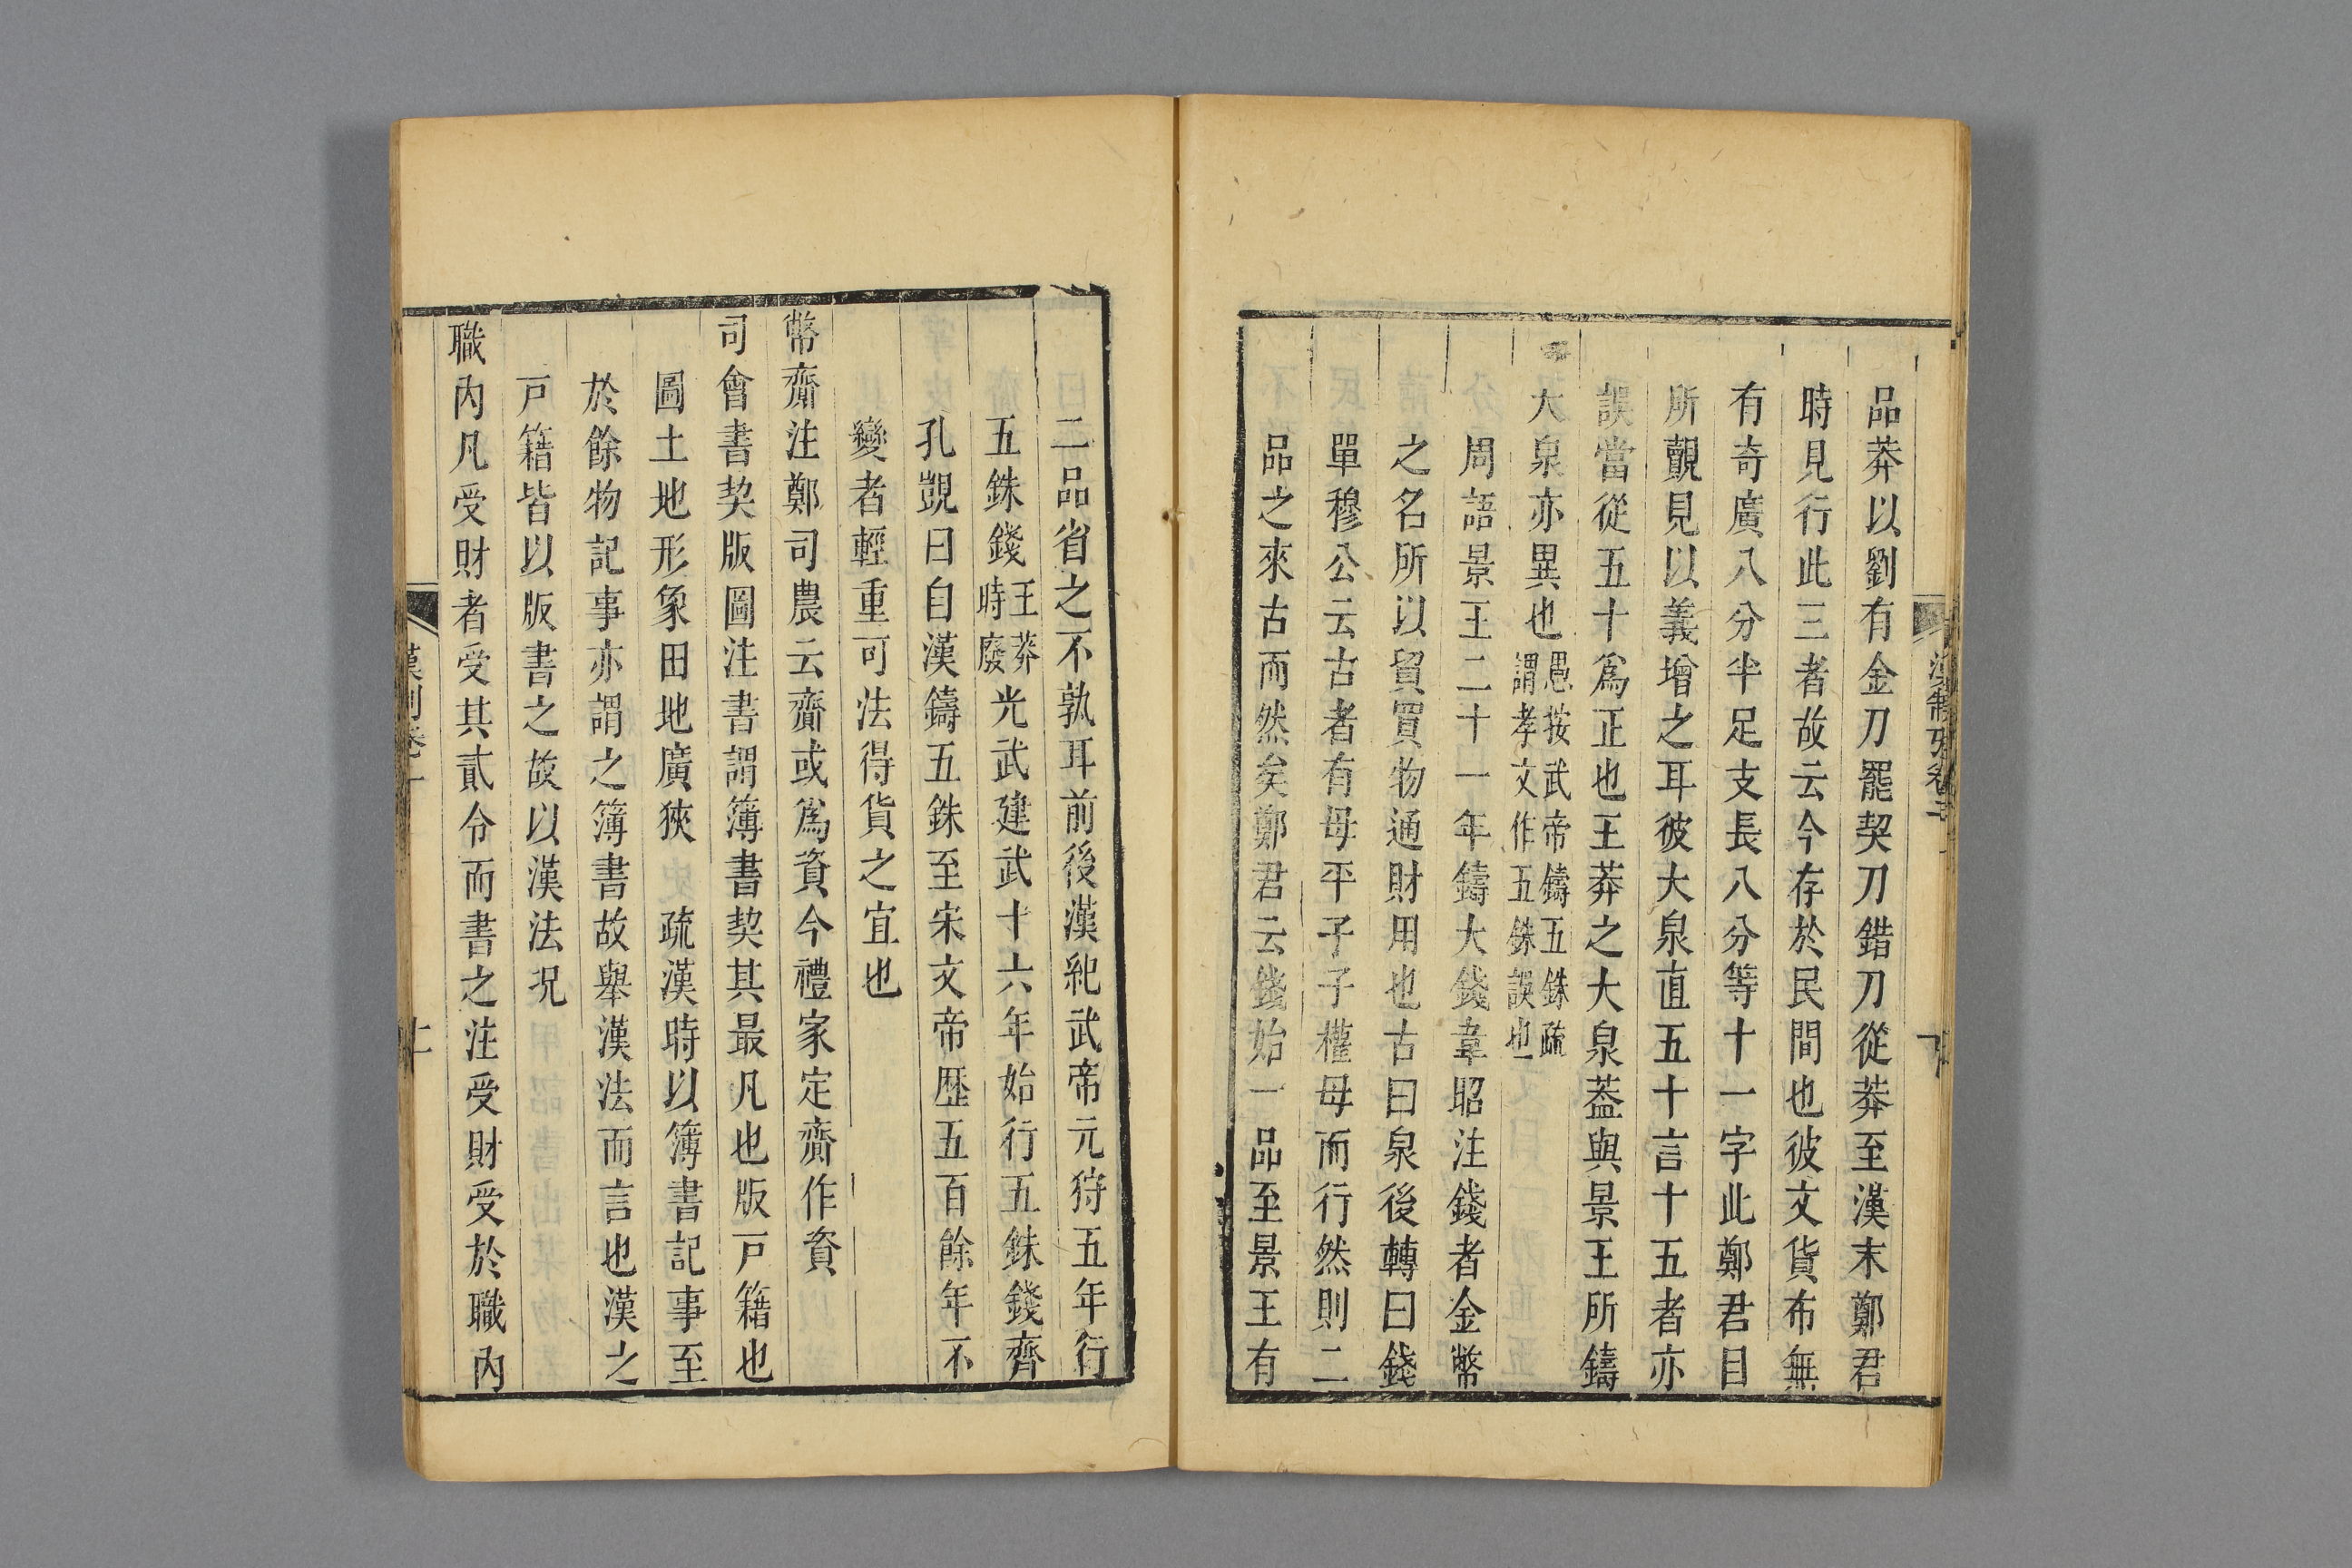 品莽以劉有金刀罷契刀錯刀從莽至漢末鄭君
時見行此三者故云今存於民間也彼文貨布無
有奇廣八分半足支長八分等十一字此鄭君目
所覩見以義增之耳彼大泉直五十言十五者亦
誤當從五十爲正也王莽之大泉葢與景王所鑄
大泉亦異也愚按武帝鑄五銖疏謂孝文作五銖誤也
周語景王二十一年鑄大錢韋昭注錢者金幣
之名所以貿買物通財用也古曰泉後轉曰錢
單穆公云古者有母平子子權母而行然則二
品之來古而然矣鄭君云錢始一品至景王有
二品省之不孰耳前後漢紀武帝元狩五年行
五銖錢王莽時廢光武建武十六年始行五銖錢齊
孔覬曰自漢鑄五銖至宋文帝歴五百餘年不
變者輕重可法得貨之宜也
幣齎注鄭司農云齎或爲資今禮家定齎作資
司會書契版圖注書謂簿書契其最凡也版戸籍也
圖土地形象田地廣狹 疏漢時以簿書記事至
於餘物記事亦謂之簿書故舉漢法而言也漢之
戸籍皆以版書之故以漢法況
職内凡受財者受其貳令而書之注受財受於職内